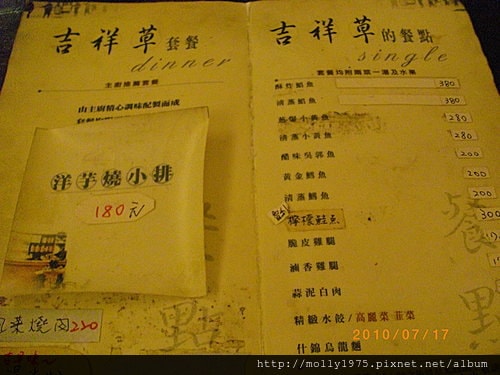 吉祥草套餐
dinner
主廚推薦套餐
由主廚精心調味配製而成
洋芋燒小排
180元
菜燒肉220
吉祥草的餐點
single
套餐均附兩菜一湯及水果
酥炸鯧魚 380
清蒸鯧魚 380
小黃魚 280
清蒸小黃魚 280
醋味吳郭魚 200
黃金鱈魚 200
清蒸鱈魚 200
檸檬鮭魚 300
脆皮雞腿
滷香雞腿
蒜泥白肉
精緻水餃/高麗菜 韮菜
什錦烏龍麵
餐
點
2010/07/17
http://molly1975.pixnet.net/album